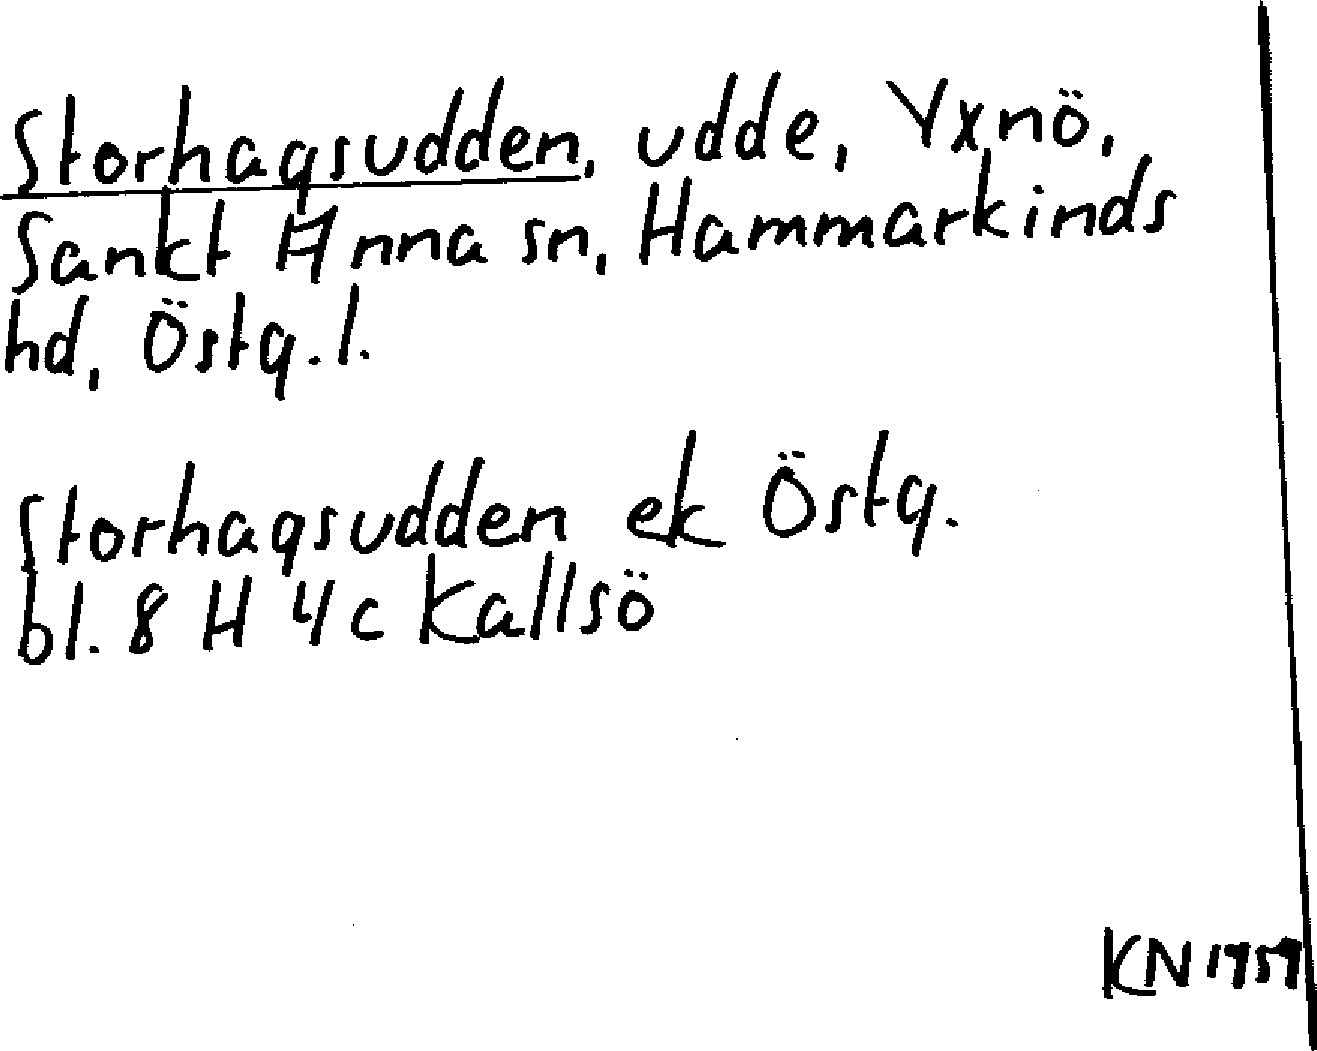 Storhagsudden, udde, Yxnö,
Sankt Anna sn, Hammarkinds
hd, Östg. l.
Storhagsudden ek Östg.
bl. 8 H 4c Kallsö
KN 1959